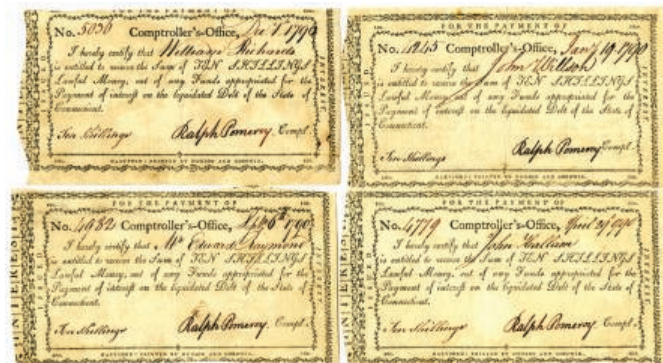 FOR THE PAYMENT OF
No. 5030 Comptroller's-Office, 1790
I hereby certify that William Richards
is entitled to receive the Sum of TEN SHILLINGS
Lawful Money, out of any Funds appropriated for the
Payment of interest on the liquidated Debt of the State of
Connecticut.
Ten Shillings Ralph Pomeroy Compt.
HARTFORD: PRINTED BY HUDSON AND GOODWIN.
FOR THE PAYMENT OF
No. 1245 Comptroller's-Office, Jany 19 1790
I hereby certify that John
is entitled to receive the Sum of TEN SHILLINGS
Lawful Money, out of any Funds appropriated for the
Payment of interest on the liquidated Debt of the State of
Connecticut.
Ten Shillings Ralph Pomeroy Compt.
HARTFORD: PRINTED BY HUDSON AND GOODWIN.
FOR THE PAYMENT OF
No. 4982 Comptroller's-Office, 1790
I hereby certify that Mr Edward Raymond
is entitled to receive the Sum of TEN SHILLINGS
Lawful Money, out of any Funds appropriated for the
Payment of interest on the liquidated Debt of the State of
Connecticut.
Ten Shillings Ralph Pomeroy Compt.
HARTFORD: PRINTED BY HUDSON AND GOODWIN.
FOR THE PAYMENT OF
No. 4779 Comptroller's-Office, April 1790
I hereby certify that John
is entitled to receive the Sum of TEN SHILLINGS
Lawful Money, out of any Funds appropriated for the
Payment of interest on the liquidated Debt of the State of
Connecticut.
Ten Shillings Ralph Pomeroy Compt.
HARTFORD: PRINTED BY HUDSON AND GOODWIN.